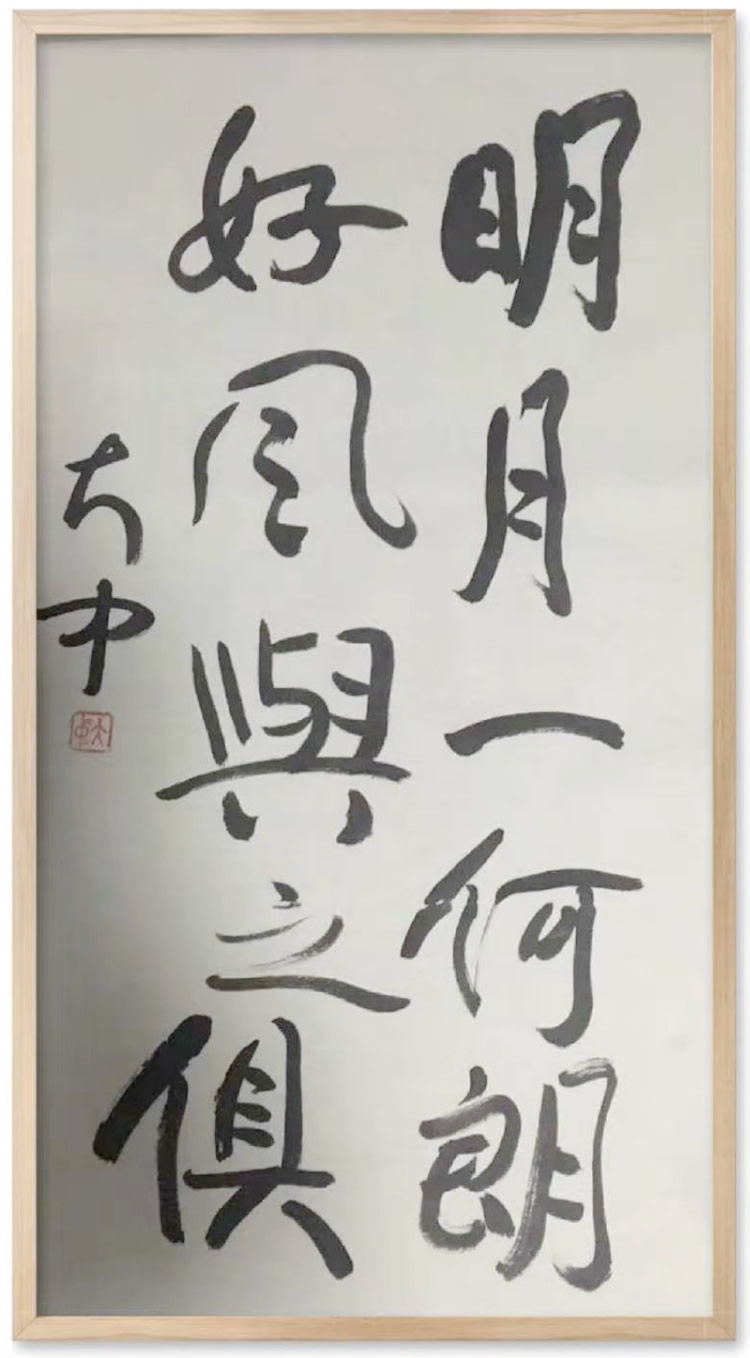 明月一何朗
好風與之俱
大中
大中